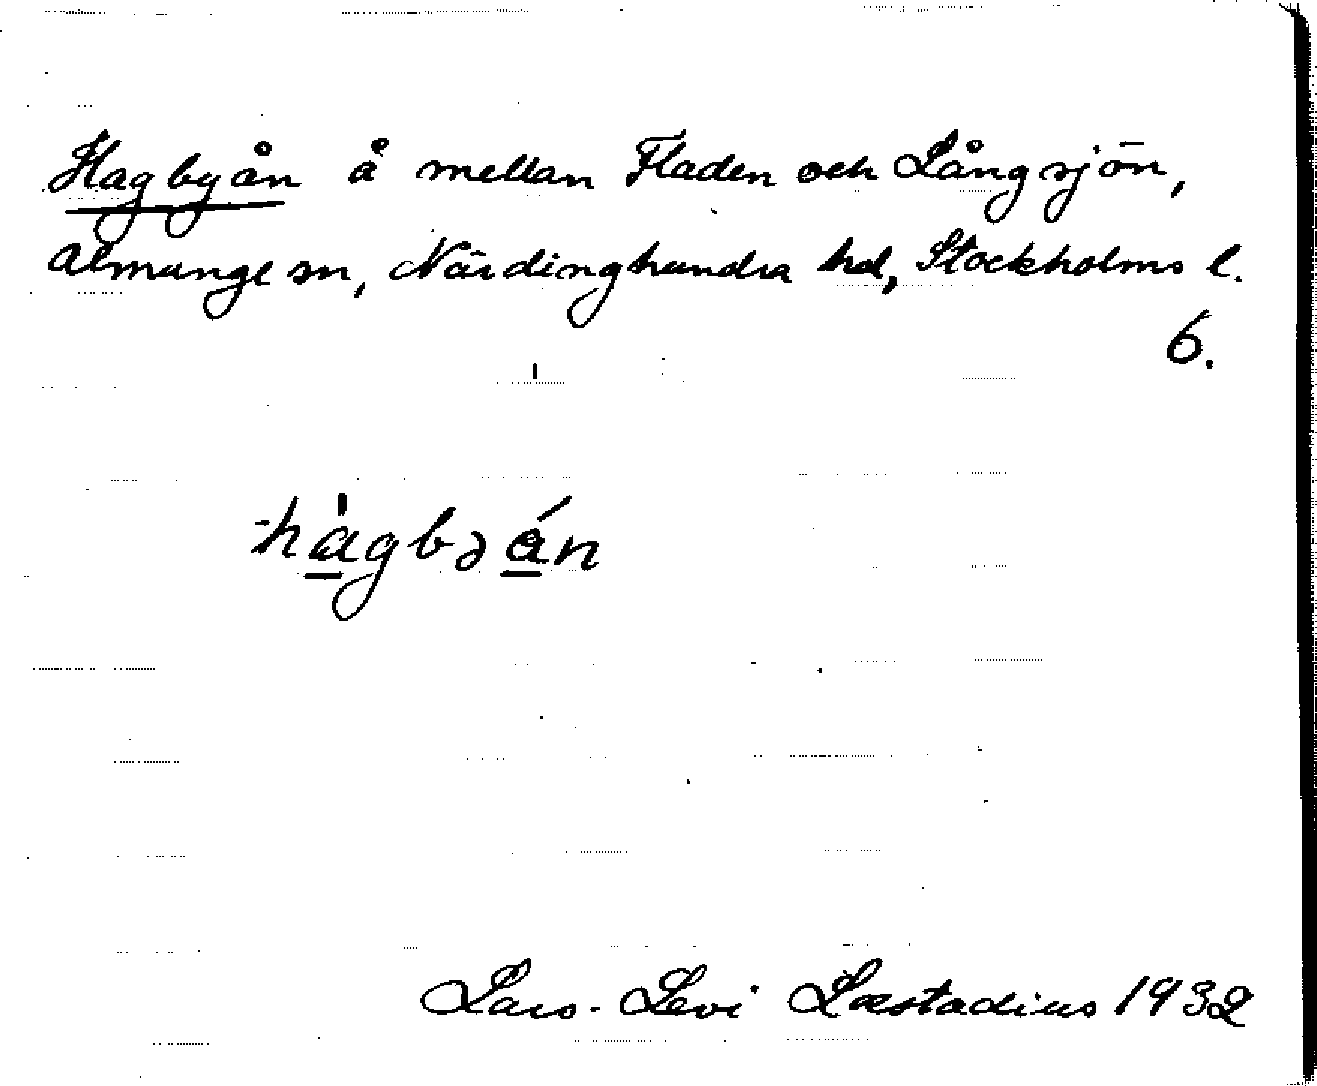 Hagbyån å mellan Fladen och Långsjön,
Almunge sn, Närdinghundra hd, Stockholms l.
6.
hàgbɔån
Lars-Levi Læstadius 1932